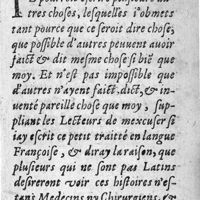 tres choses, lesquelles i'obmets
tant pource que ce seroit dire chose,
que possible d'autres peuuent auoir
faict & dit mesme chose si biē que
moy. Et n'est pas impossible que
d'autres n'ayent faict, dict, & in-
uenté pareille chose que moy, sup-
pliant les Lecteurs de m'excuser si
i'ay escrit ce petit traitté en langue
Françoise, & diray la raison, que
plusieurs qui ne sont pas Latins
desireront voir ces histoires n'es-
tans Medecins ny Chirurgiens, &